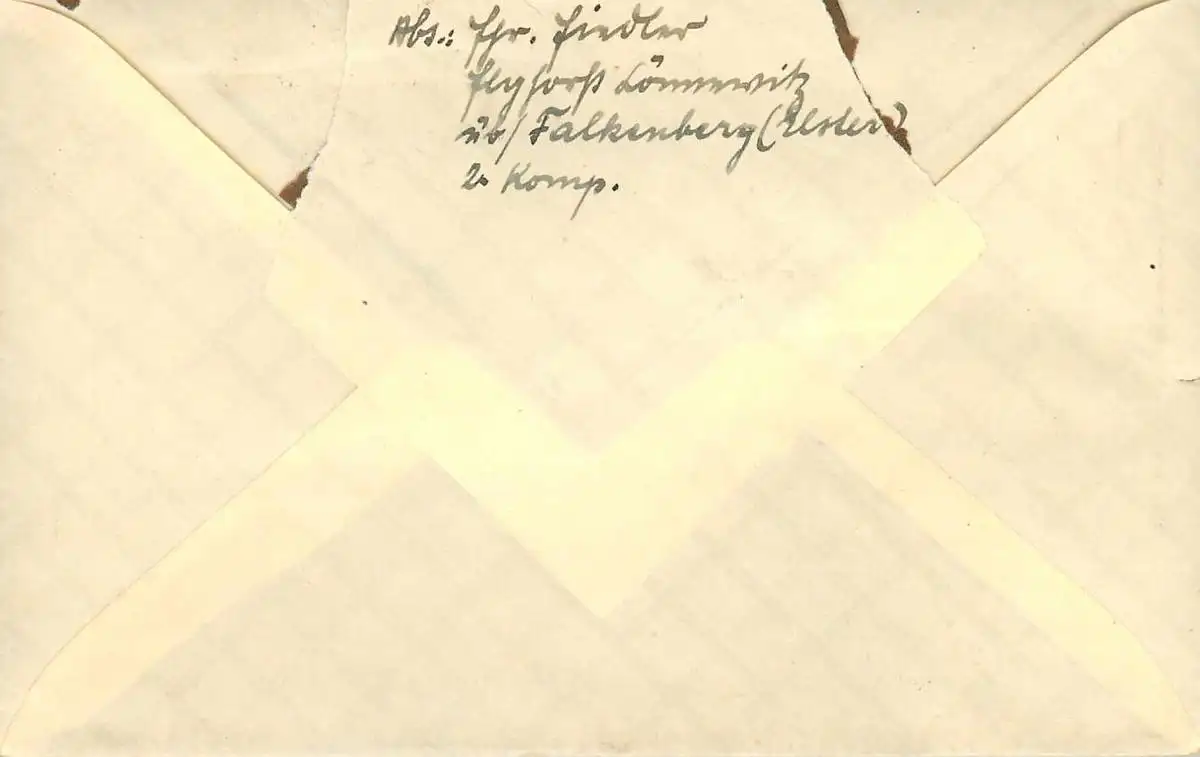 Abs.: Fhr. Fiedler
Flghorst Lönnewitz
üb/Falkenberg (Elster)
2. Komp.